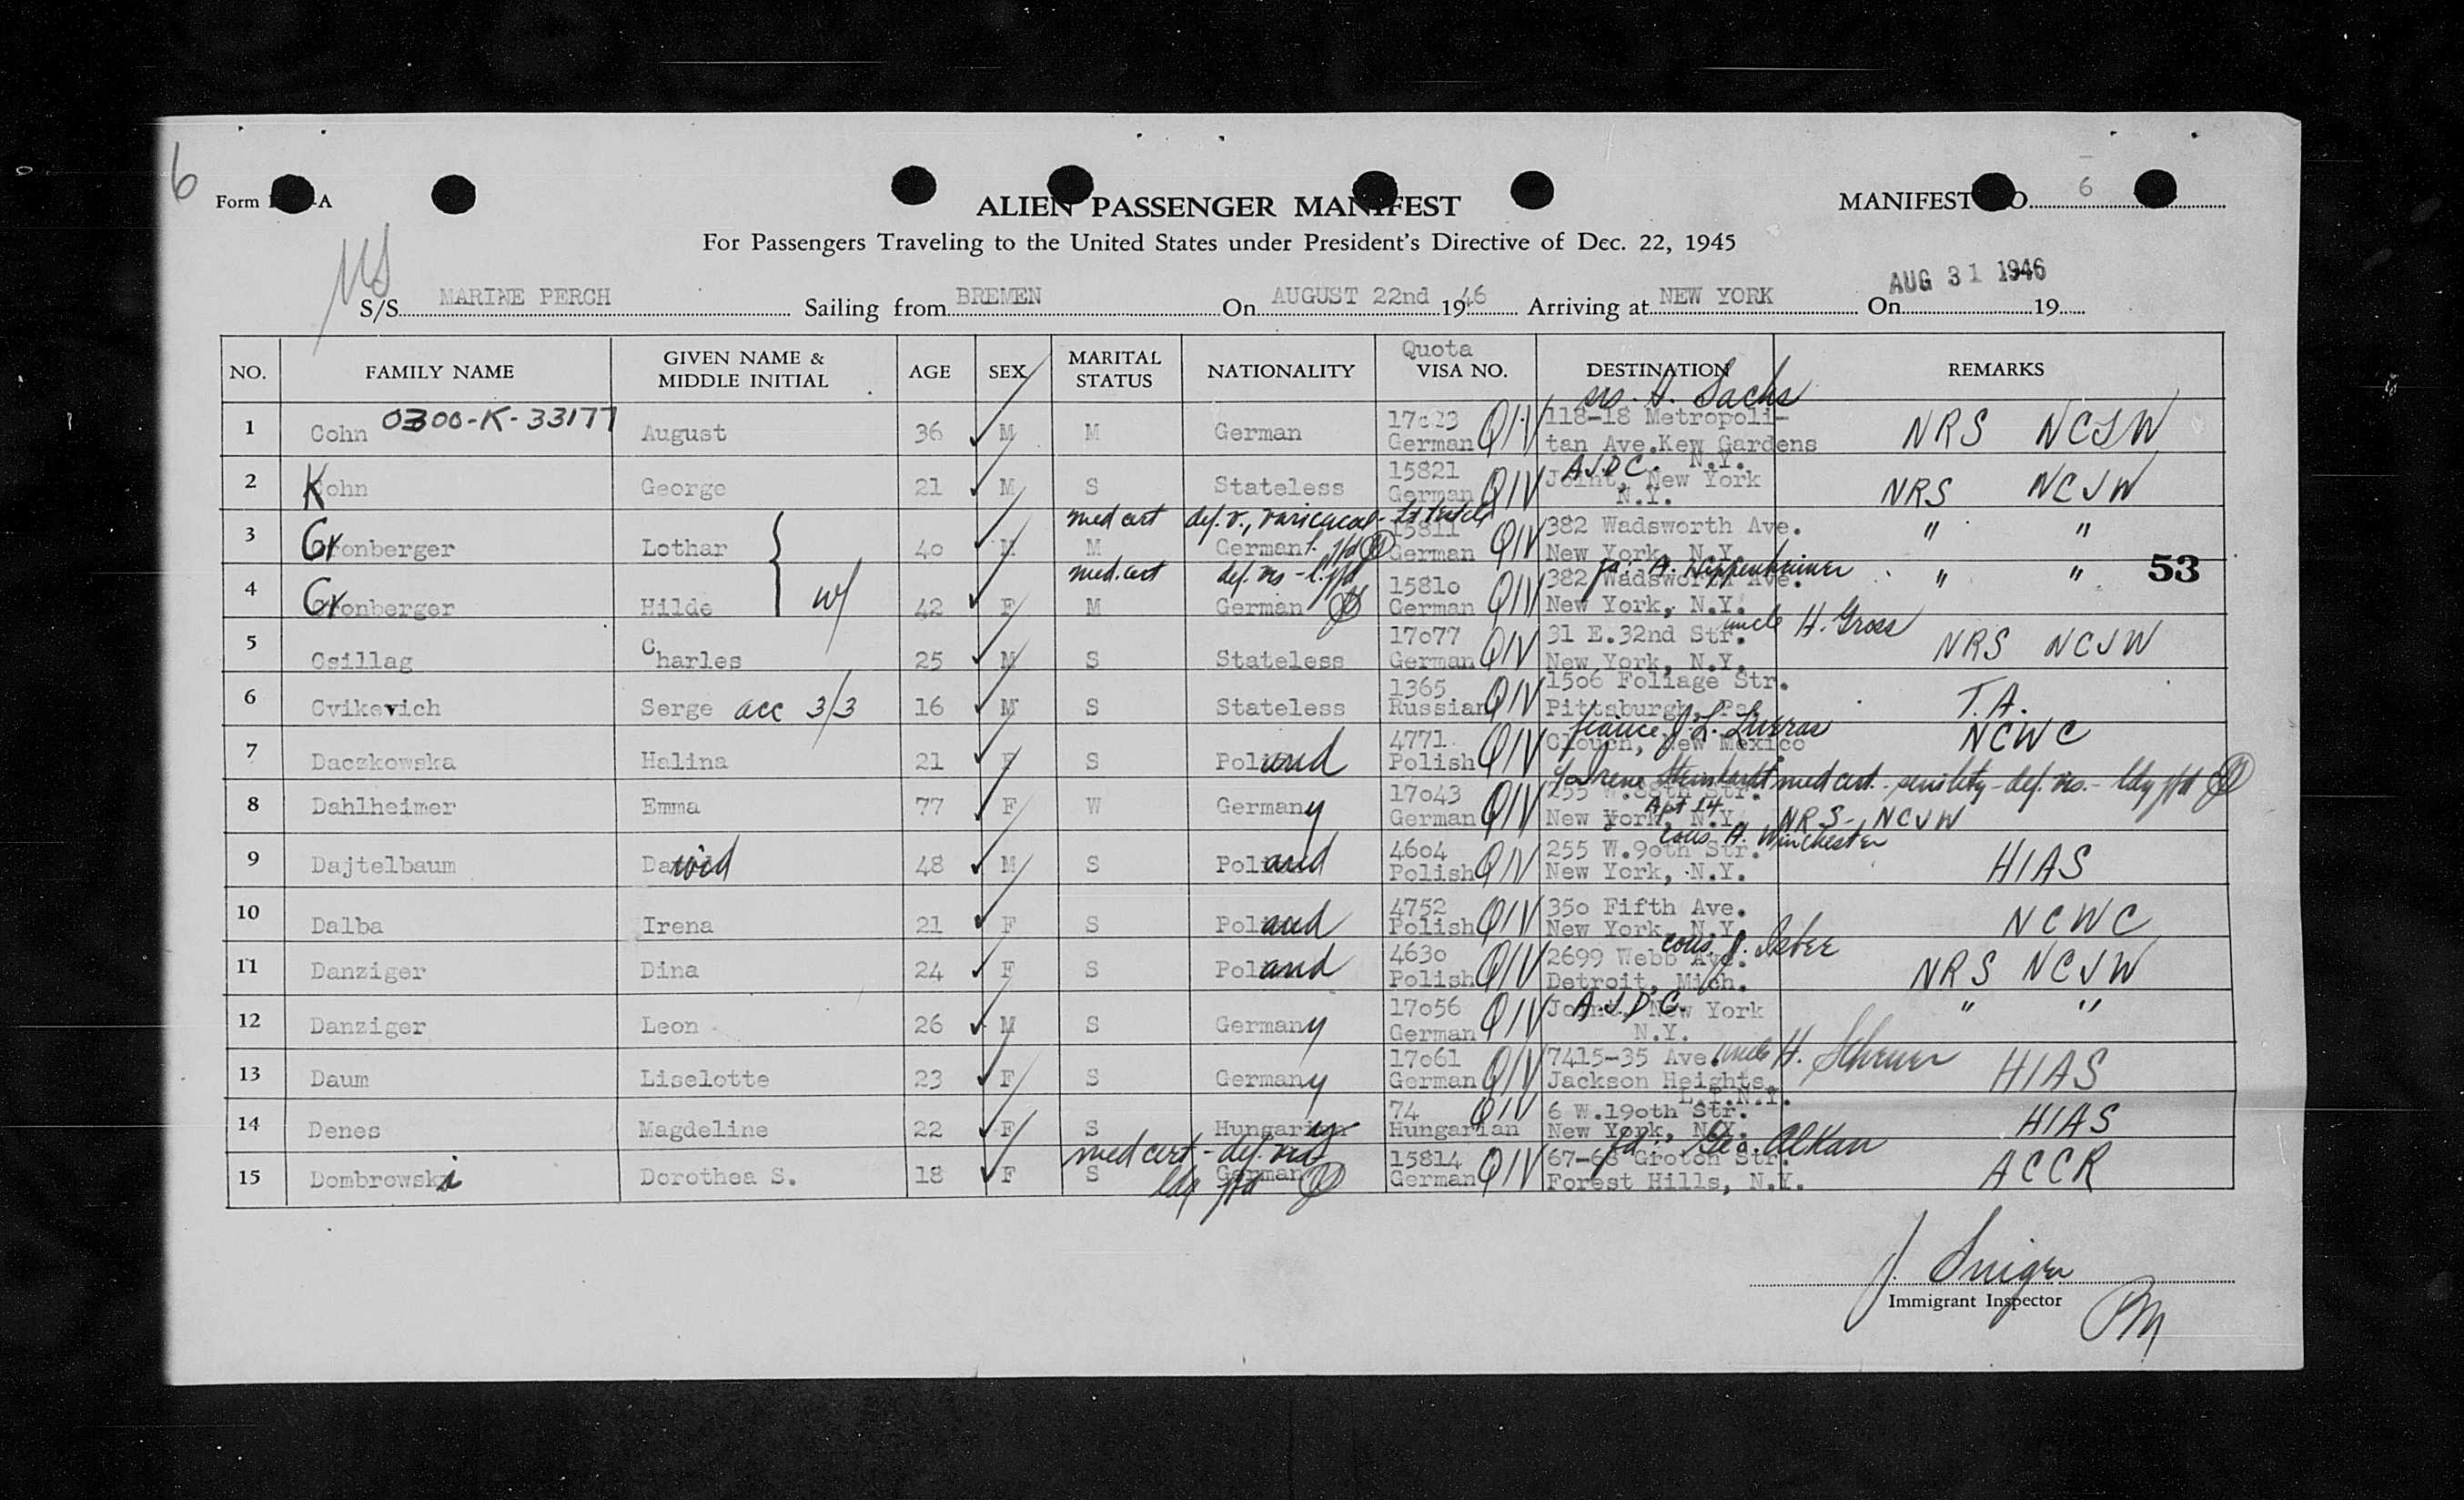 6
Form -A
ALIEN PASSENGER MANIFEST
MANIFEST NO. 6
For Passengers Traveling to the United States under President's Directive of Dec. 22, 1945
AUG 31 1946
S/S MARINE PERCH Sailing from BREMEN On AUGUST 22nd 1946 Arriving at NEW YORK On 19
NO. FAMILY NAME GIVEN NAME & MIDDLE INITIAL AGE SEX MARITAL STATUS NATIONALITY Quota VISA NO. DESTINATION REMARKS
H. Sachs
1 Cohn 0300-K-33177 August 36 M M German German QIV 118-18 Metropolitan Ave. Kew Gardens N.Y. NRS NCJW
2 Kohn George 21 M S Stateless 15821 German QIV A.J.D.C. Joint, New York N.Y. NRS NCJW
med cert def. v., varicocele
3 Gronberger Lothar 40 M M German 15811 German QIV 382 Wadsworth Ave. New York, N.Y. " "
med. cert def. vis
53
4 Gronberger Hilde w/ 42 F M German 15810 German QIV 382 Wadsworth Ave. New York, N.Y. " "
uncle H. Gross
5 Csillag Charles 25 M S Stateless 17077 German QIV 31 E.32nd Str. New York, N.Y. NRS NCJW
6 Cvikevich Serge acc 3/3 16 M S Stateless 1365 Russian QIV 1506 Foliage Str. Pittsburgh, Pa. T.A.
fiance J. L.
7 Daczkowska Halina 21 F S Poland 4771 Polish QIV New Mexico NCWC
Irene Steinhardt med cert. - senility - def. vis.
8 Dahlheimer Emma 77 F W Germany 17043 German QIV 255 W.88th Str. Apt 14 New York, N.Y. NRS - NCJW
cous. H. Winchester
9 Dajtelbaum Dawid 48 M S Poland 4604 Polish QIV 255 W.90th Str. New York, N.Y. HIAS
10 Dalba Irena 21 F S Poland 4752 Polish QIV 350 Fifth Ave. New York, N.Y. NCWC
cous. J.
11 Danziger Dina 24 F S Poland 4630 Polish QIV 2699 Webb Ave. Detroit, Mich. NRS NCJW
12 Danziger Leon 26 M S Germany 17056 German QIV A.J.D.C. Joint, New York N.Y. " "
uncle H.
13 Daum Liselotte 23 F S Germany 17061 German QIV 7415-35 Ave. Jackson Heights, L.I.N.Y. HIAS
14 Denes Magdeline 22 F S Hungary 74 Hungarian QIV 6 W.190th Str. New York, N.Y. HIAS
med cert - def. vis
Geo. Alkan
15 Dombrowski Dorothea S. 18 F S German 15814 German QIV 67-68 Groton Str. Forest Hills, N.Y. ACCR
J.
Immigrant Inspector